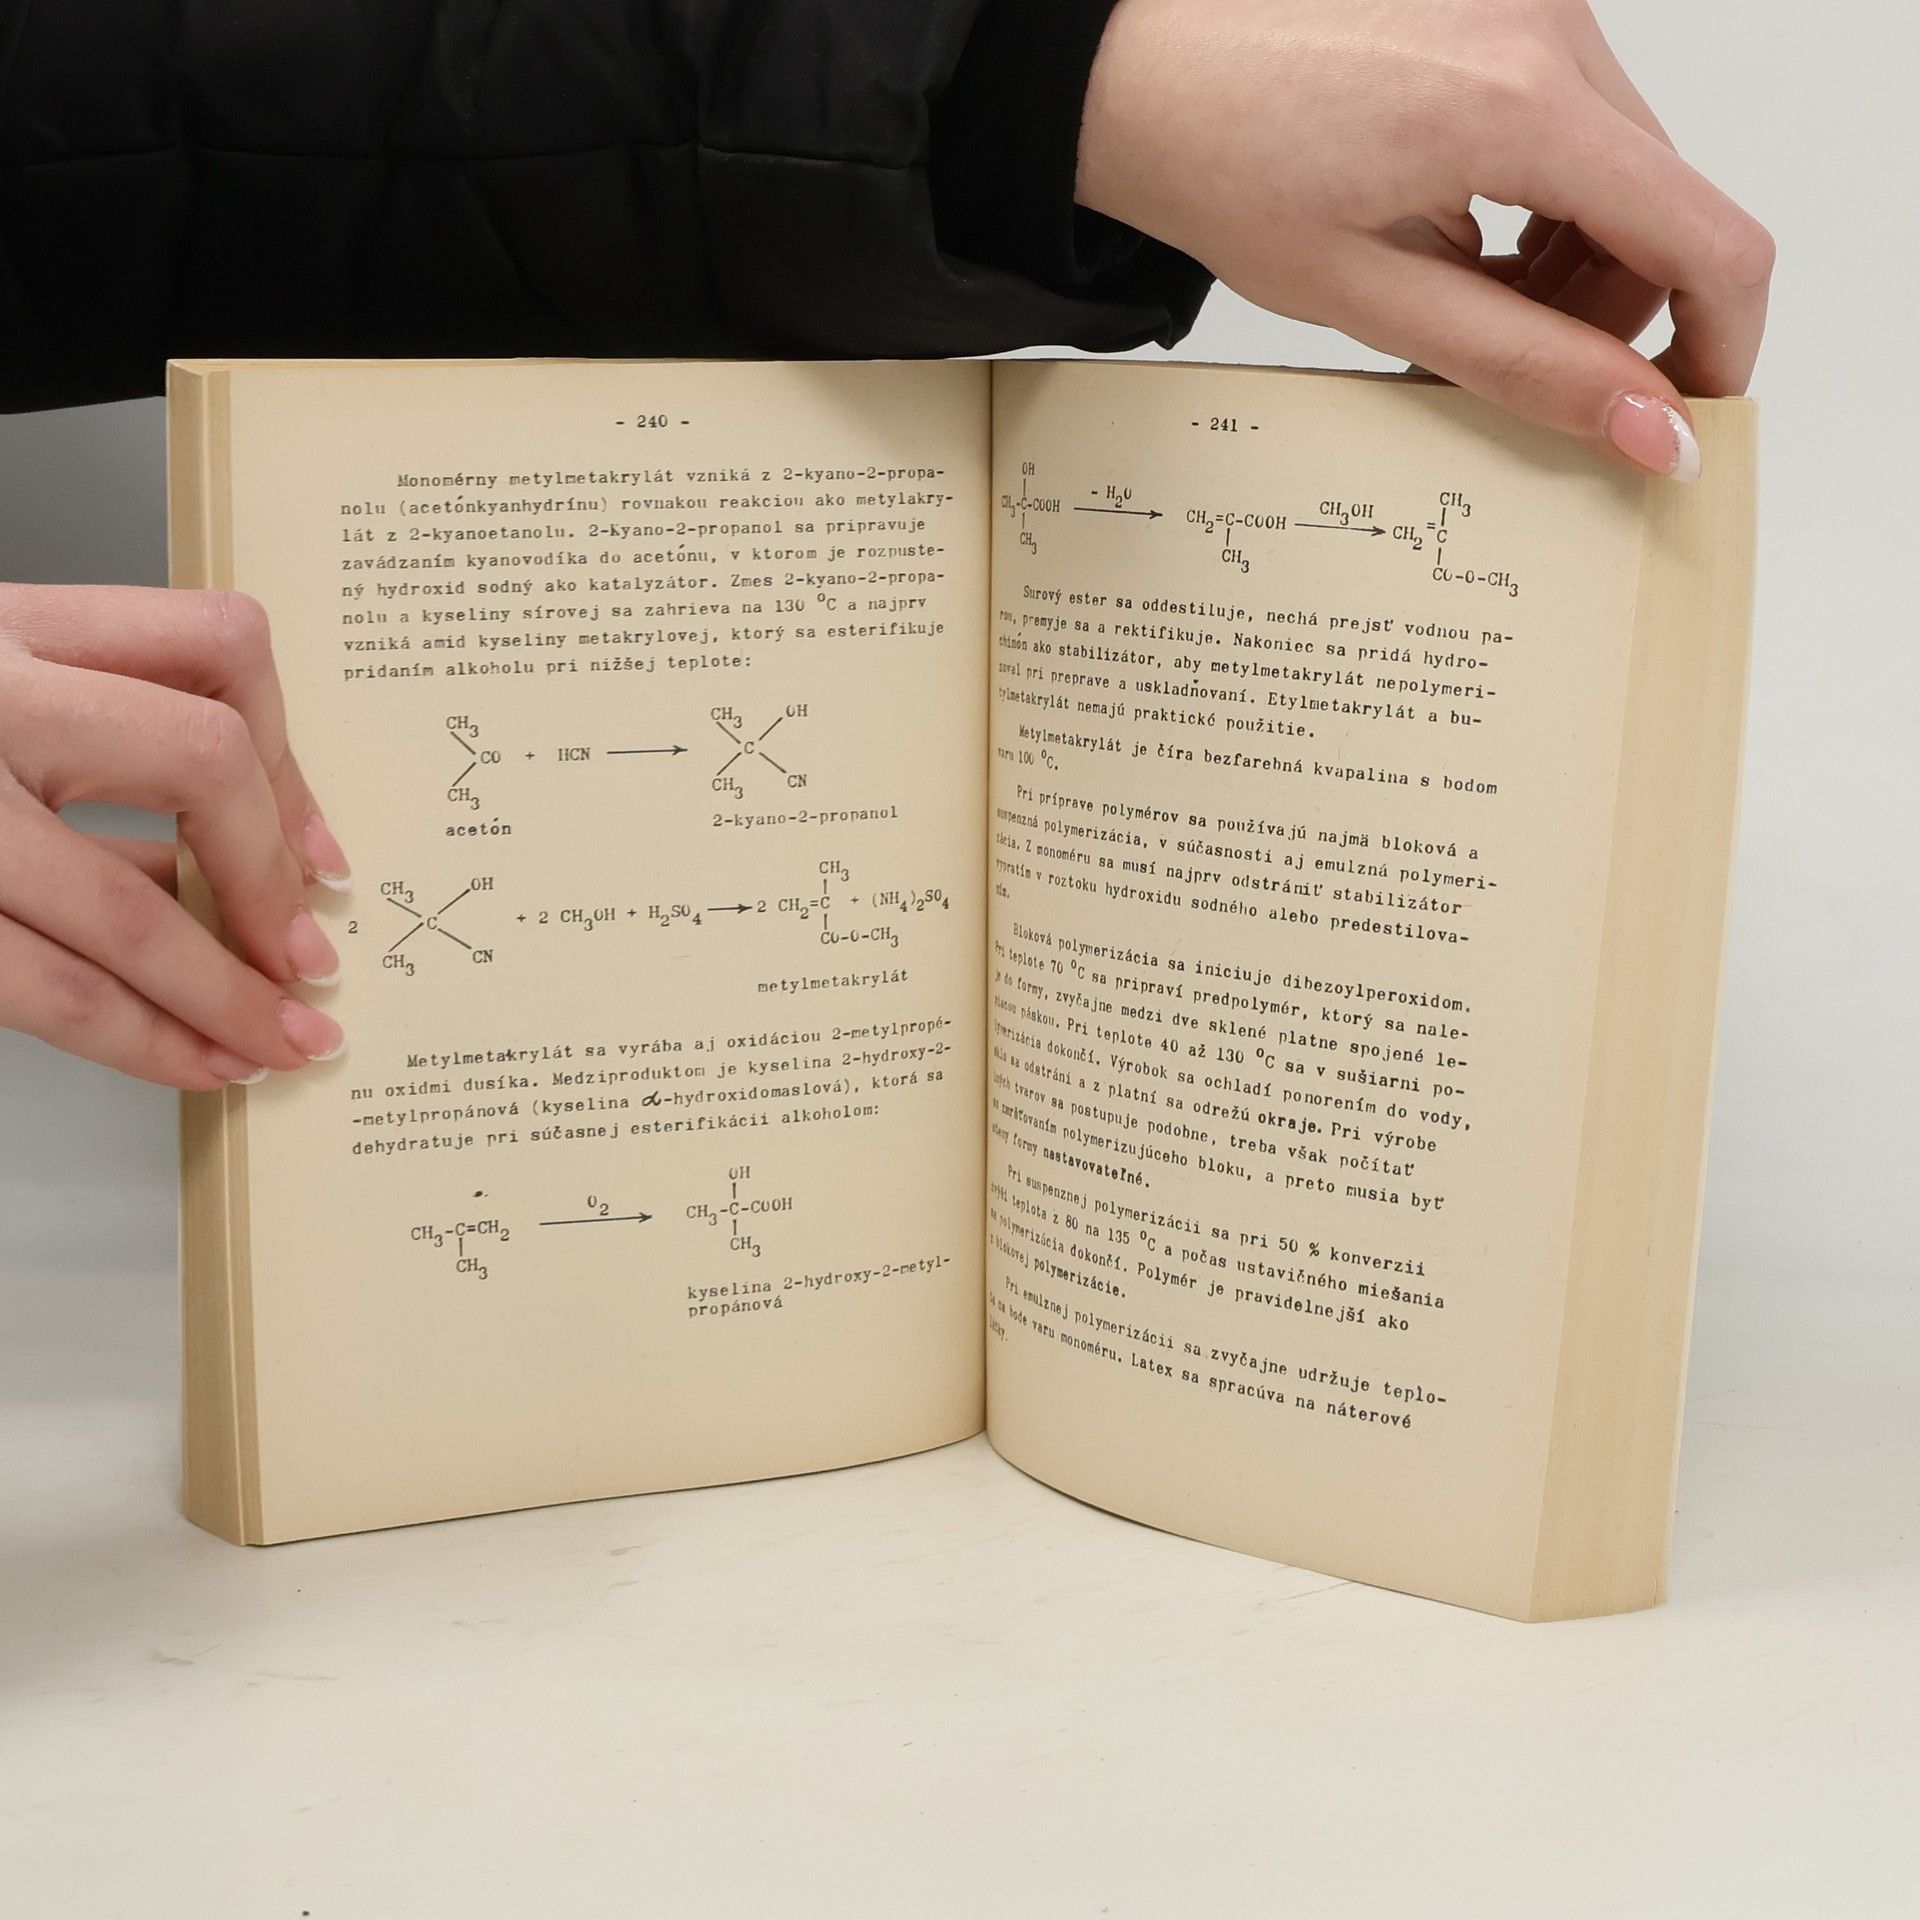 - 240 -
Monomérny metylmetakrylát vzniká z 2-kyano-2-propa-
nolu (acetónkyanhydrínu) rovnakou reakciou ako metylakry-
lát z 2-kyanoetanolu. 2-Kyano-2-propanol sa pripravuje
zavádzaním kyanovodíka do acetónu, v ktorom je rozpuste-
ný hydroxid sodný ako katalyzátor. Zmes 2-kyano-2-propa-
nolu a kyseliny sírovej sa zahrieva na 130 °C a najprv
vzniká amid kyseliny metakrylovej, ktorý sa esterifikuje
pridaním alkoholu pri nižšej teplote:
CH3 CH3 OH
CO + HCN → C
CH3 CH3 CN
acetón 2-kyano-2-propanol
CH3 OH CH3
2 C + 2 CH3OH + H2SO4 → 2 CH2=C + (NH4)2SO4
CH3 CN CO-O-CH3
metylmetakrylát
Metylmetakrylát sa vyrába aj oxidáciou 2-metylpropé-
nu oxidmi dusíka. Medziproduktom je kyselina 2-hydroxy-2-
-metylpropánová (kyselina α-hydroxidomaslová), ktorá sa
dehydratuje pri súčasnej esterifikácii alkoholom:
OH
CH3-C=CH2 O2 → CH3-C-COOH
CH3 CH3
kyselina 2-hydroxy-2-metyl-
propánová
- 241 -
OH CH3
CH3-C-COOH - H2O → CH2=C-COOH CH3OH → CH2=C
CH3 CH3 CO-O-CH3
Surový ester sa oddestiluje, nechá prejsť vodnou pa-
rou, premyje sa a rektifikuje. Nakoniec sa pridá hydro-
chinón ako stabilizátor, aby metylmetakrylát nepolymeri-
zoval pri preprave a uskladňovaní. Etylmetakrylát a bu-
tylmetakrylát nemajú praktické použitie.
Metylmetakrylát je číra bezfarebná kvapalina s bodom
varu 100 °C.
Pri príprave polymérov sa používajú najmä bloková a
suspenzná polymerizácia, v súčasnosti aj emulzná polymeri-
zácia. Z monoméru sa musí najprv odstrániť stabilizátor
vypratím v roztoku hydroxidu sodného alebo predestilova-
ním.
Bloková polymerizácia sa iniciuje dibezoylperoxidom.
Pri teplote 70 °C sa pripraví predpolymér, ktorý sa nale-
je do formy, zvyčajne medzi dve sklené platne spojené le-
piacou páskou. Pri teplote 40 až 130 °C sa v sušiarni po-
lymerizácia dokončí. Výrobok sa ochladí ponorením do vody,
sklo sa odstráni a z platní sa odrežú okraje. Pri výrobe
iných tvarov sa postupuje podobne, treba však počítať
so zmršťovaním polymerizujúceho bloku, a preto musia byť
steny formy nastavovateľné.
Pri suspenznej polymerizácii sa pri 50 % konverzii
zvýši teplota z 80 na 135 °C a počas ustavičného miešania
sa polymerizácia dokončí. Polymér je pravidelnejší ako
z blokovej polymerizácie.
Pri emulznej polymerizácii sa zvyčajne udržuje teplo-
ta na bode varu monoméru. Latex sa spracúva na náterové
látky.